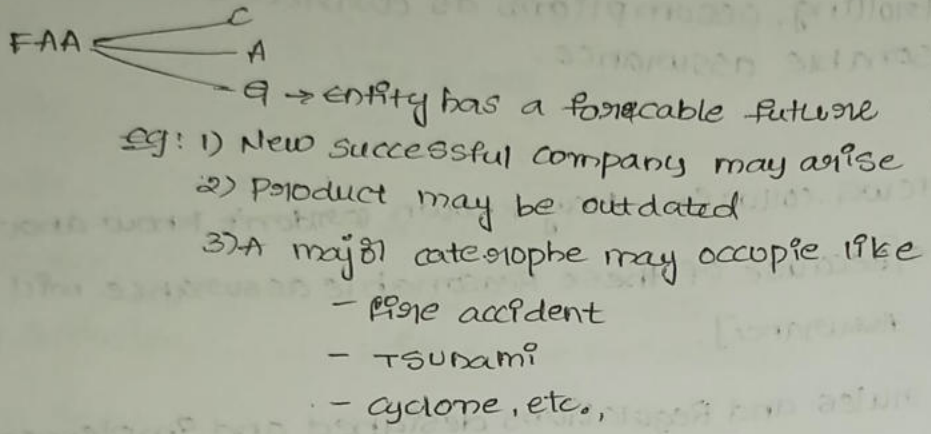 FAA C
A
G → entity has a forecable future
Eg: 1) New successful company may arise
2) Product may be outdated
3) A major caterophe may occopie like
- Fire accident
- Tsunami
- cyclone, etc.,